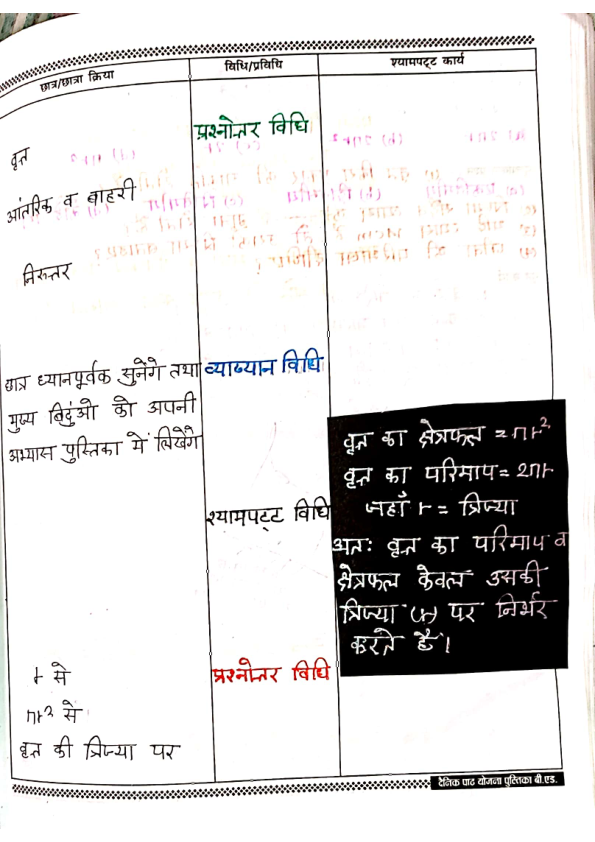 छात्र/छात्रा क्रिया
विधि/प्रविधि
श्यामपट्ट कार्य
प्रश्नोत्तर विधि
वृत्त
आंतरिक व बाहरी
निरूत्तर
छात्र ध्यानपूर्वक सुनेंगे तथा
मुख्य बिदुंओ को अपनी
अभ्यास पुस्तिका में लिखेंगे
व्याख्यान विधि
श्यामपट्ट विधि
वृत्त का क्षेत्रफल = πr²
वृत्त का परिमाप = 2πr
जहाँ r = त्रिज्या
अतः वृत्त का परिमाप व
क्षेत्रफल केवल उसकी
त्रिज्या (r) पर निर्भर
करते है।
r से
πr² से
वृत्त की त्रिज्या पर
प्रश्नोत्तर विधि
दैनिक पाठ योजना पुस्तिका बी.एड.